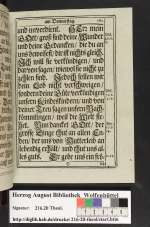 am Donnerstag.
und unverdient. HErr mein
GOtt, groß sind deine Wunder
und deine Gedancken, die du an
uns beweisest, dir ist nichts gleich.
Ich will sie verkündigen, und
davon sagen, wiewol sie nicht zu
zehlen sind.
dein Lob nicht verschweigen,
sondern deine Güte verkündigen
unsern Kindeskindern, und von
deiner Treu sagen unsern Nach-
kömmlingen, weil die Welt ste-
het. Nun dancket GOtt, der
grosse Dinge thut an allen En-
den, der uns von Mutterleib an
lebendig erhält, und thut uns al-
les guts. Er gebe uns ein
Herzog August Bibliothek Wolfenbüttel
Signatur: 216.20 Theol.
http://diglib.hab.de/drucke/216-20-theol/start.htm